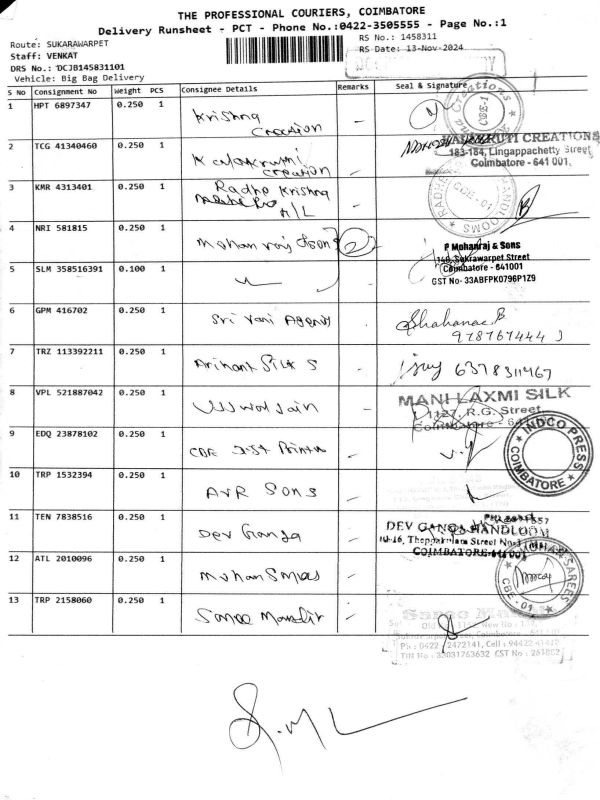 THE PROFESSIONAL COURIERS, COIMBATORE
Delivery Runsheet - PCT - Phone No.:0422-3505555 - Page No.:1
Route: SUKARAWARPET
RS No.: 1458311
Staff: VENKAT
RS Date: 13-Nov-2024
DRS No.: DCJB145831101
Vehicle: Big Bag Delivery
S No Consignment No Weight PCS Consignee Details Remarks Seal & Signature
1 HPT 6897347 0.250 1 Krishna Creation
2 TCG 41340460 0.250 1 creation
KALAKRUTI CREATIONS
183-184, Lingappachetty Street
Coimbatore - 641 001.
3 KMR 4313401 0.250 1 Radhe Krishna H/L
CBE - 01
4 NRI 581815 0.250 1 Mohan raj &sons 2
P Mohanraj & Sons
140, Sukrawarpet Street
Coimbatore - 641001
GST No- 33ABFPK0796P1Z9
5 SLM 358516391 0.100 1
6 GPM 416702 0.250 1 Sri Vani Agency Shahanac B
9787674443
7 TRZ 113392211 0.250 1 Arihant Silk s 6378311467
8 VPL 521887042 0.250 1 Ujjwal Jain
MANI LAXMI SILK
1127, R.G. Street,
Coimbatore - 641
9 EDQ 23878102 0.250 1 CBE Print
INDCO PRESS
COIMBATORE
10 TRP 1532394 0.250 1 AVR Sons
11 TEN 7838516 0.250 1 Dev Ganga
DEV GANGA HANDLOOM
COIMBATORE-641001
12 ATL 2010096 0.250 1 Mohan Sarees
MOHAN SAREES
CBE - 01
13 TRP 2158060 0.250 1 Saree Mandir
Saree
Ph : 0422 - 2472141, Cell : 94422
TIN No : 33031763632 CST No : 261802